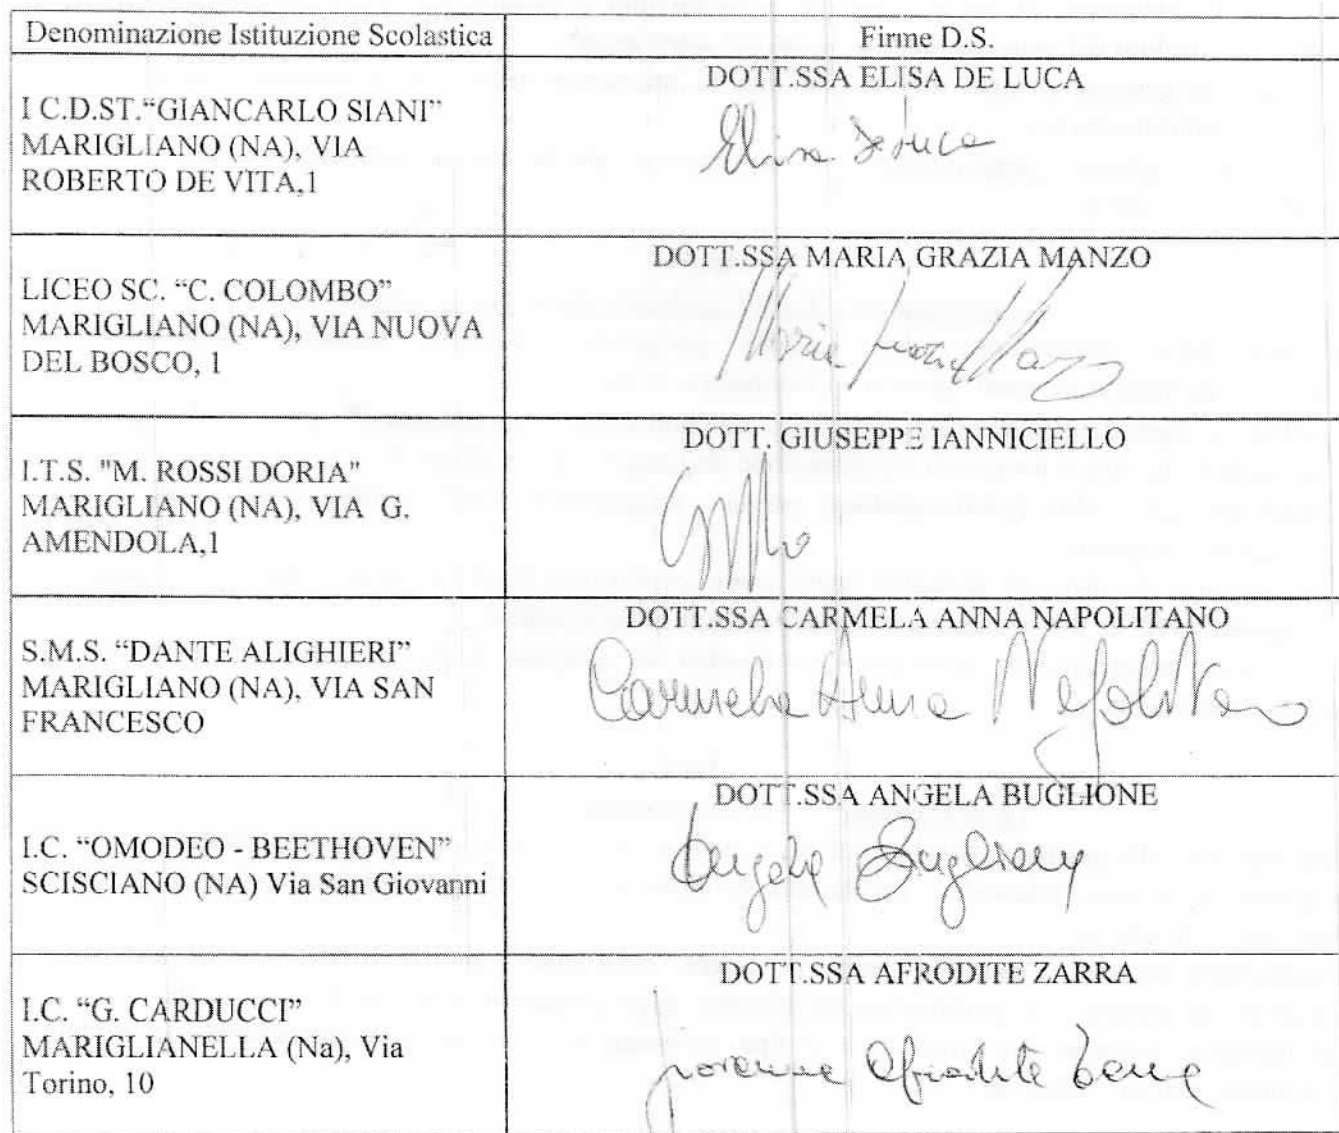 Denominazione Istituzione Scolastica
Firme D.S.
I C.D.ST.“GIANCARLO SIANI”
MARIGLIANO (NA), VIA
ROBERTO DE VITA,1
DOTT.SSA ELISA DE LUCA
Elisa De Luca
LICEO SC. “C. COLOMBO”
MARIGLIANO (NA), VIA NUOVA
DEL BOSCO, 1
DOTT.SSA MARIA GRAZIA MANZO
Maria Grazia Manzo
I.T.S. "M. ROSSI DORIA"
MARIGLIANO (NA), VIA G.
AMENDOLA,1
DOTT. GIUSEPPE IANNICIELLO
S.M.S. “DANTE ALIGHIERI”
MARIGLIANO (NA), VIA SAN
FRANCESCO
DOTT.SSA CARMELA ANNA NAPOLITANO
Carmela Anna Napolitano
I.C. “OMODEO - BEETHOVEN”
SCISCIANO (NA) Via San Giovanni
DOTT.SSA ANGELA BUGLIONE
Angela Buglione
I.C. “G. CARDUCCI”
MARIGLIANELLA (Na), Via
Torino, 10
DOTT.SSA AFRODITE ZARRA
Giovanna Afrodite Zarra